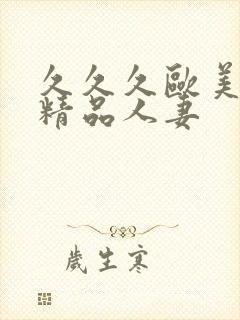 久久久歐美
精品人妻
歲生寒